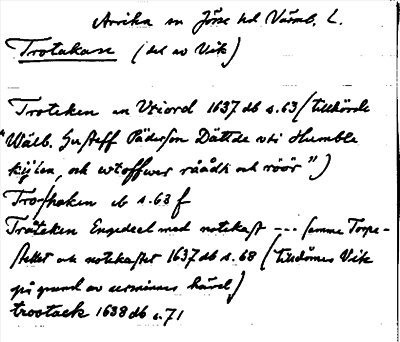 Arvika sn Jösse hd Värml. L.
Trotakase (del av Vik)
Troteken en Utiord 1637 db s. 63 (tillhörde
"Wälb. Gusteff Päderson Dättde uti Humble
kijlen, och utoffwer råådh och röör")
Trothaken db s. 63 f
Tråteken Engedeel med notekast --- samme Torpe-
stellet och notekastet 1637 db s. 68 (tilldömes Vik
på grund av urminnes hävd)
trootaek 1638 db s. 71